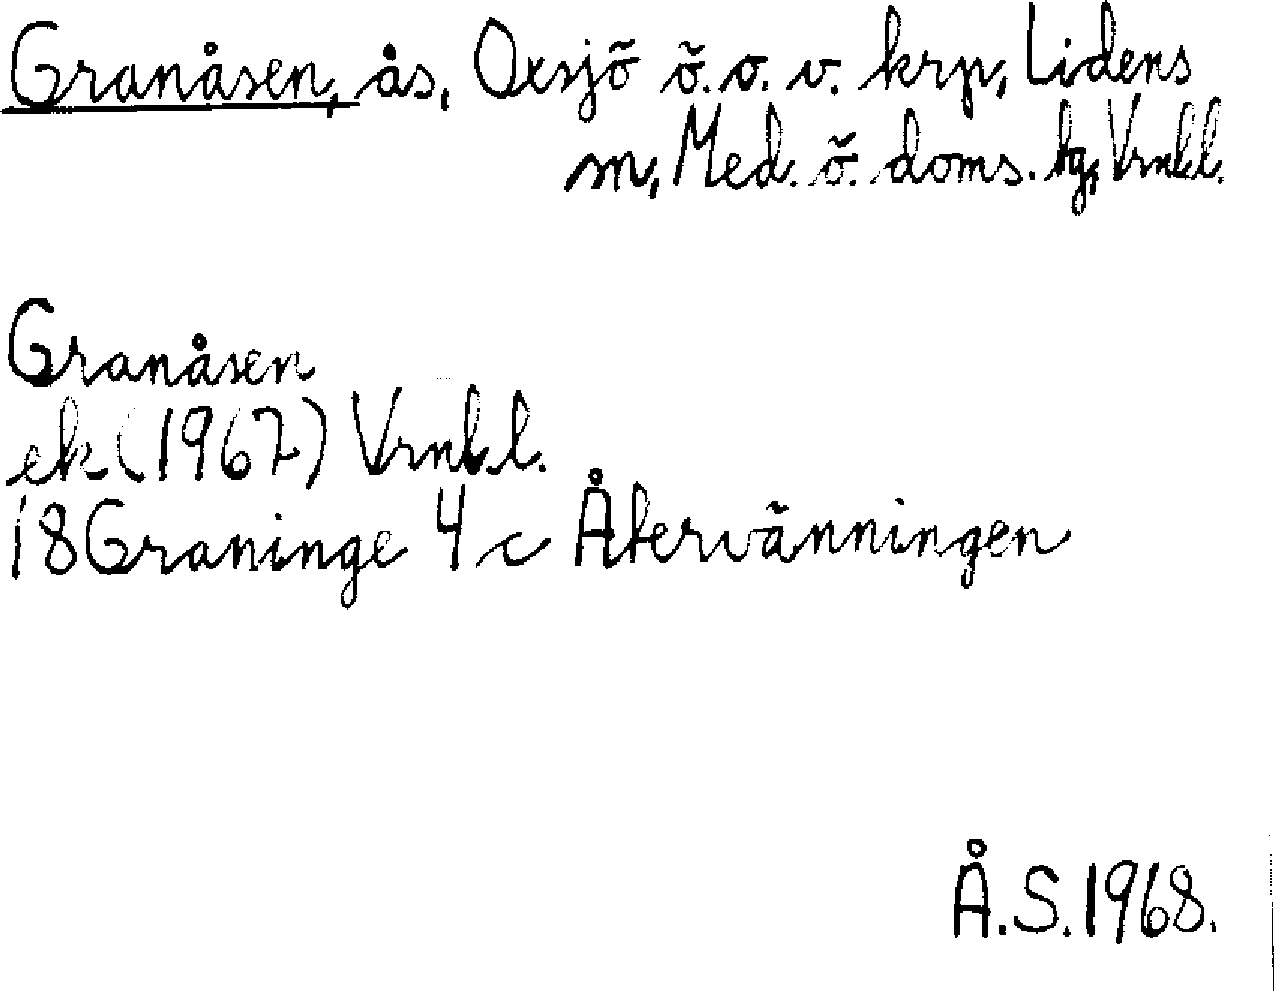 Granåsen, ås, Oxsjö ö. o. v. krp, Lidens
m, Med. ö. doms. tg, Vrnl.
Granåsen
ek (1967) Vrnl.
18 Graninge 4 c Återvänningen
Å.S. 1968.